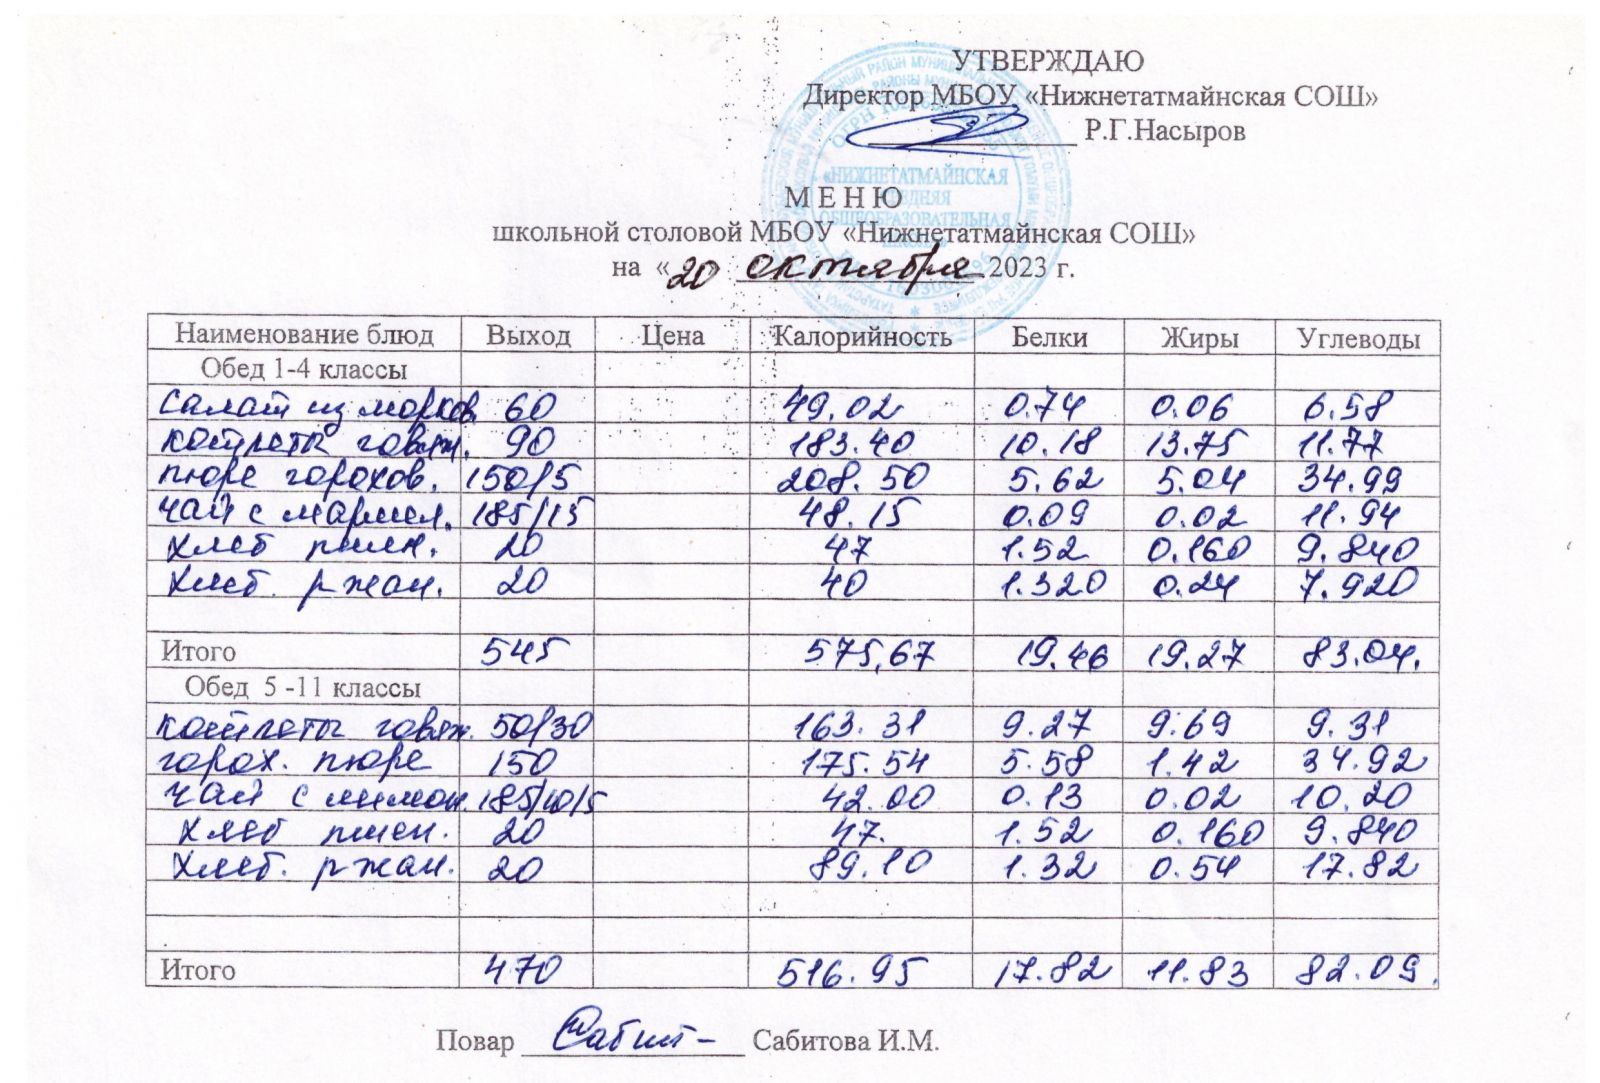 УТВЕРЖДАЮ
Директор МБОУ «Нижнетатмайнская СОШ»
Р.Г.Насыров
«НИЖНЕТАТМАЙНСКАЯ
СРЕДНЯЯ
ОБЩЕОБРАЗОВАТЕЛЬНАЯ
М Е Н Ю
школьной столовой МБОУ «Нижнетатмайнская СОШ»
на «20 октября 2023 г.
Наименование блюд Выход Цена Калорийность Белки Жиры Углеводы
Обед 1-4 классы
салат из морков. 60 49.02 0.74 0.06 6.58
котлеты говяж. 90 183.40 10.18 13.75 11.77
пюре горохов. 150/5 208.50 5.62 5.04 34.99
чай с мармел. 185/15 48.15 0.09 0.02 11.94
хлеб пшен. 20 47 1.52 0.160 9.840
хлеб. ржан. 20 40 1.320 0.24 7.920
Итого 545 575,67 19.46 19.27 83.04.
Обед 5 -11 классы
котлеты говяж. 50/30 163.31 9.27 9.69 9.31
горох. пюре 150 175.54 5.58 1.42 34.92
чай с лимон. 185/10/5 42.00 0.13 0.02 10.20
хлеб пшен. 20 47. 1.52 0.160 9.840
хлеб. ржан. 20 89.10 1.32 0.54 17.82
Итого 470 516.95 17.82 11.83 82.09.
Повар Сабит- Сабитова И.М.